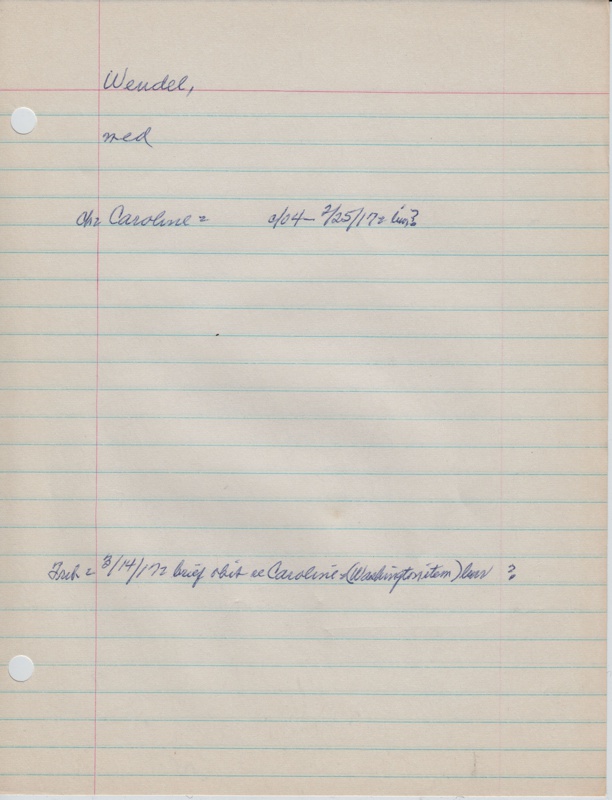 Wendel,
med
ch= Caroline = c/04 - 2/25/17= bur?
Trib = 3/14/17= brief obit re Caroline = (Washington item) bur ?